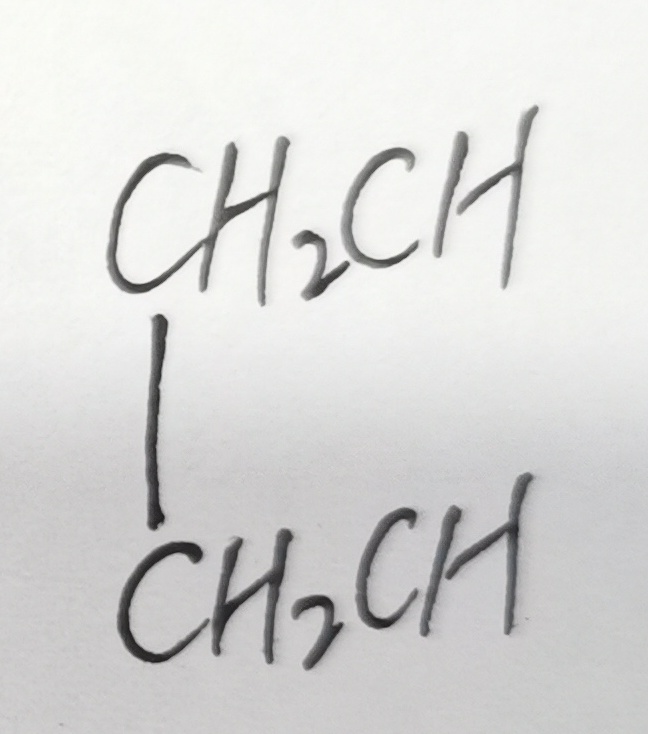 CH₂CH
|
CH₂CH